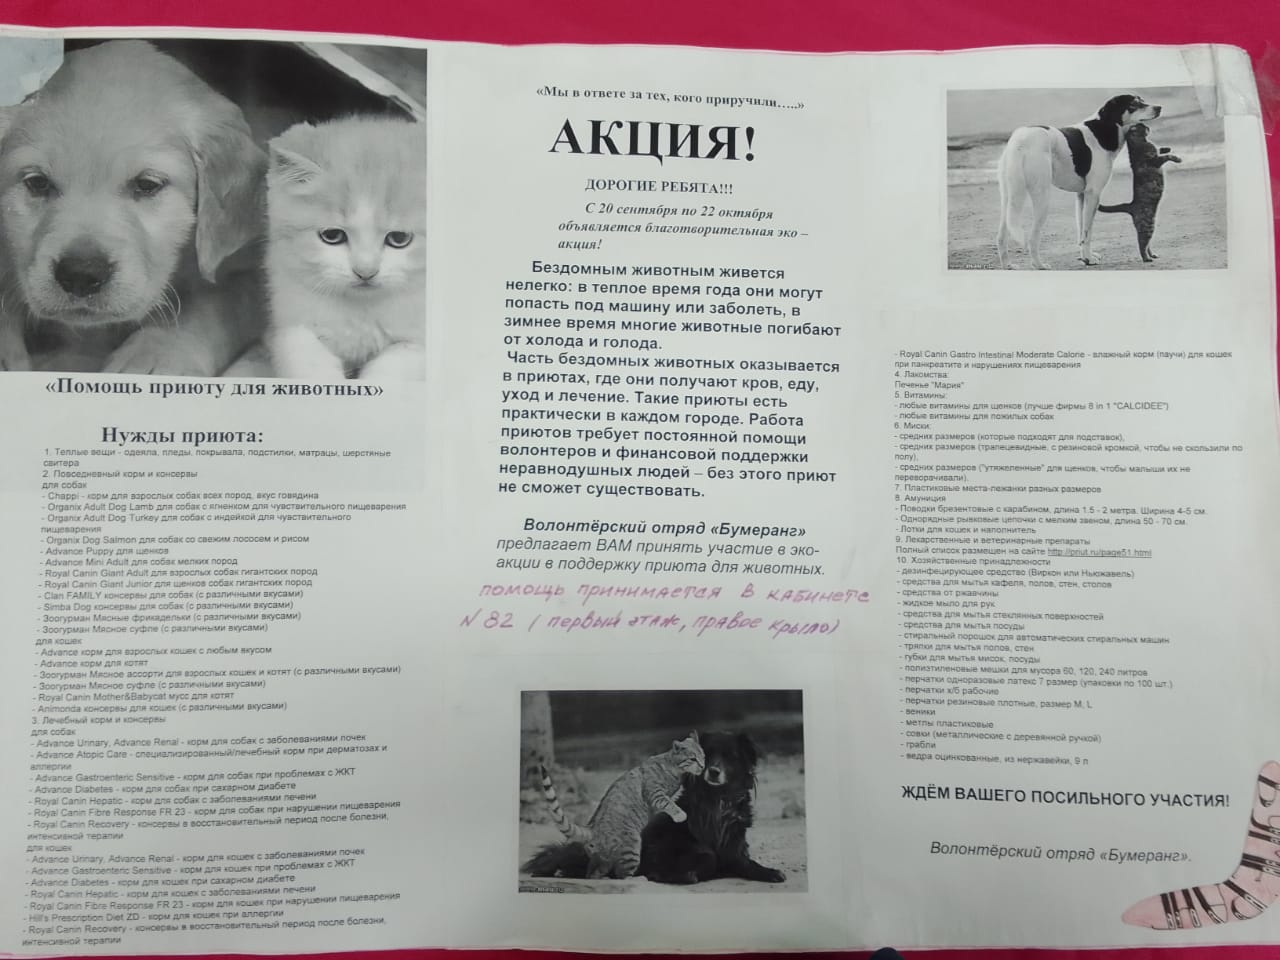 «Помощь приюту для животных»
Нужды приюта:
1. Теплые вещи - одеяла, пледы, покрывала, подстилки, матрацы, шерстяные
свитера
2. Повседневный корм и консервы
для собак
- Chappi - корм для взрослых собак всех пород, вкус говядина
- Organix Adult Dog Lamb для собак с ягненком для чувствительного пищеварения
- Organix Adult Dog Turkey для собак с индейкой для чувствительного
пищеварения
- Organix Dog Salmon для собак со свежим лососем и рисом
- Advance Puppy для щенков
- Advance Mini Adult для собак мелких пород
- Royal Canin Giant Adult для взрослых собак гигантских пород
- Royal Canin Giant Junior для щенков собак гигантских пород
- Clan FAMILY консервы для собак (с различными вкусами)
- Simba Dog консервы для собак (с различными вкусами)
- Зоогурман Мясные фрикадельки (с различными вкусами)
- Зоогурман Мясное суфле (с различными вкусами)
для кошек
- Advance корм для взрослых кошек с любым вкусом
- Advance корм для котят
- Зоогурман Мясное ассорти для взрослых кошек и котят (с различными вкусами)
- Зоогурман Мясное суфле (с различными вкусами)
- Royal Canin Mother&Babycat мусс для котят
- Animonda консервы для кошек (с различными вкусами)
3. Лечебный корм и консервы
для собак
- Advance Urinary, Advance Renal - корм для собак с заболеваниями почек
- Advance Atopic Care - специализированный/лечебный корм при дерматозах и
аллергии
- Advance Gastroenteric Sensitive - корм для собак при проблемах с ЖКТ
- Advance Diabetes - корм для собак при сахарном диабете
- Royal Canin Hepatic - корм для собак с заболеваниями печени
- Royal Canin Fibre Response FR 23 - корм для собак при нарушении пищеварения
- Royal Canin Recovery - консервы в восстановительный период после болезни,
интенсивной терапии
для кошек
- Advance Urinary, Advance Renal - корм для кошек с заболеваниями почек
- Advance Gastroenteric Sensitive - корм для кошек при проблемах с ЖКТ
- Advance Diabetes - корм для кошек при сахарном диабете
- Royal Canin Hepatic - корм для кошек с заболеваниями печени
- Royal Canin Fibre Response FR 23 - корм для кошек при нарушении пищеварения
- Hill's Prescription Diet ZD - корм для кошек при аллергии
- Royal Canin Recovery - консервы в восстановительный период после болезни,
интенсивной терапии
«Мы в ответе за тех, кого приручили…..»
АКЦИЯ!
ДОРОГИЕ РЕБЯТА!!!
С 20 сентября по 22 октября
объявляется благотворительная эко –
акция!
Бездомным животным живется
нелегко: в теплое время года они могут
попасть под машину или заболеть, в
зимнее время многие животные погибают
от холода и голода.
Часть бездомных животных оказывается
в приютах, где они получают кров, еду,
уход и лечение. Такие приюты есть
практически в каждом городе. Работа
приютов требует постоянной помощи
волонтеров и финансовой поддержки
неравнодушных людей – без этого приют
не сможет существовать.
Волонтёрский отряд «Бумеранг»
предлагает ВАМ принять участие в эко-
акции в поддержку приюта для животных.
помощь принимается в кабинете
№ 82 (первый этаж, правое крыло)
- Royal Canin Gastro Intestinal Moderate Calorie - влажный корм (паучи) для кошек
при панкреатите и нарушениях пищеварения
4. Лакомства:
Печенье "Мария"
5. Витамины:
- любые витамины для щенков (лучше фирмы 8 in 1 "CALCIDEE")
- любые витамины для пожилых собак
6. Миски:
- средних размеров (которые подходят для подставок),
- средних размеров (трапециевидные, с резиновой кромкой, чтобы не скользили по
полу),
- средних размеров ("утяжеленные" для щенков, чтобы малыши их не
переворачивали).
7. Пластиковые места-лежанки разных размеров
8. Амуниция
- Поводки брезентовые с карабином, длина 1.5 - 2 метра. Ширина 4-5 см.
- Однорядные рывковые цепочки с мелким звеном, длина 50 - 70 см.
- Лотки для кошек и наполнитель
9. Лекарственные и ветеринарные препараты
Полный список размещен на сайте http://priut.ru/page51.html
10. Хозяйственные принадлежности
- дезинфицирующее средство (Виркон или Ньюжавель)
- средства для мытья кафеля, полов, стен, столов
- средства от ржавчины
- жидкое мыло для рук
- средства для мытья стеклянных поверхностей
- средства для мытья посуды
- стиральный порошок для автоматических стиральных машин
- тряпки для мытья полов, стен
- губки для мытья мисок, посуды
- полиэтиленовые мешки для мусора 60, 120, 240 литров
- перчатки одноразовые латекс 7 размер (упаковки по 100 шт.)
- перчатки х/б рабочие
- перчатки резиновые плотные, размер M, L
- веники
- метлы пластиковые
- совки (металлические с деревянной ручкой)
- грабли
- ведра оцинкованные, из нержавейки, 9 л
ЖДЁМ ВАШЕГО ПОСИЛЬНОГО УЧАСТИЯ!
Волонтёрский отряд «Бумеранг».